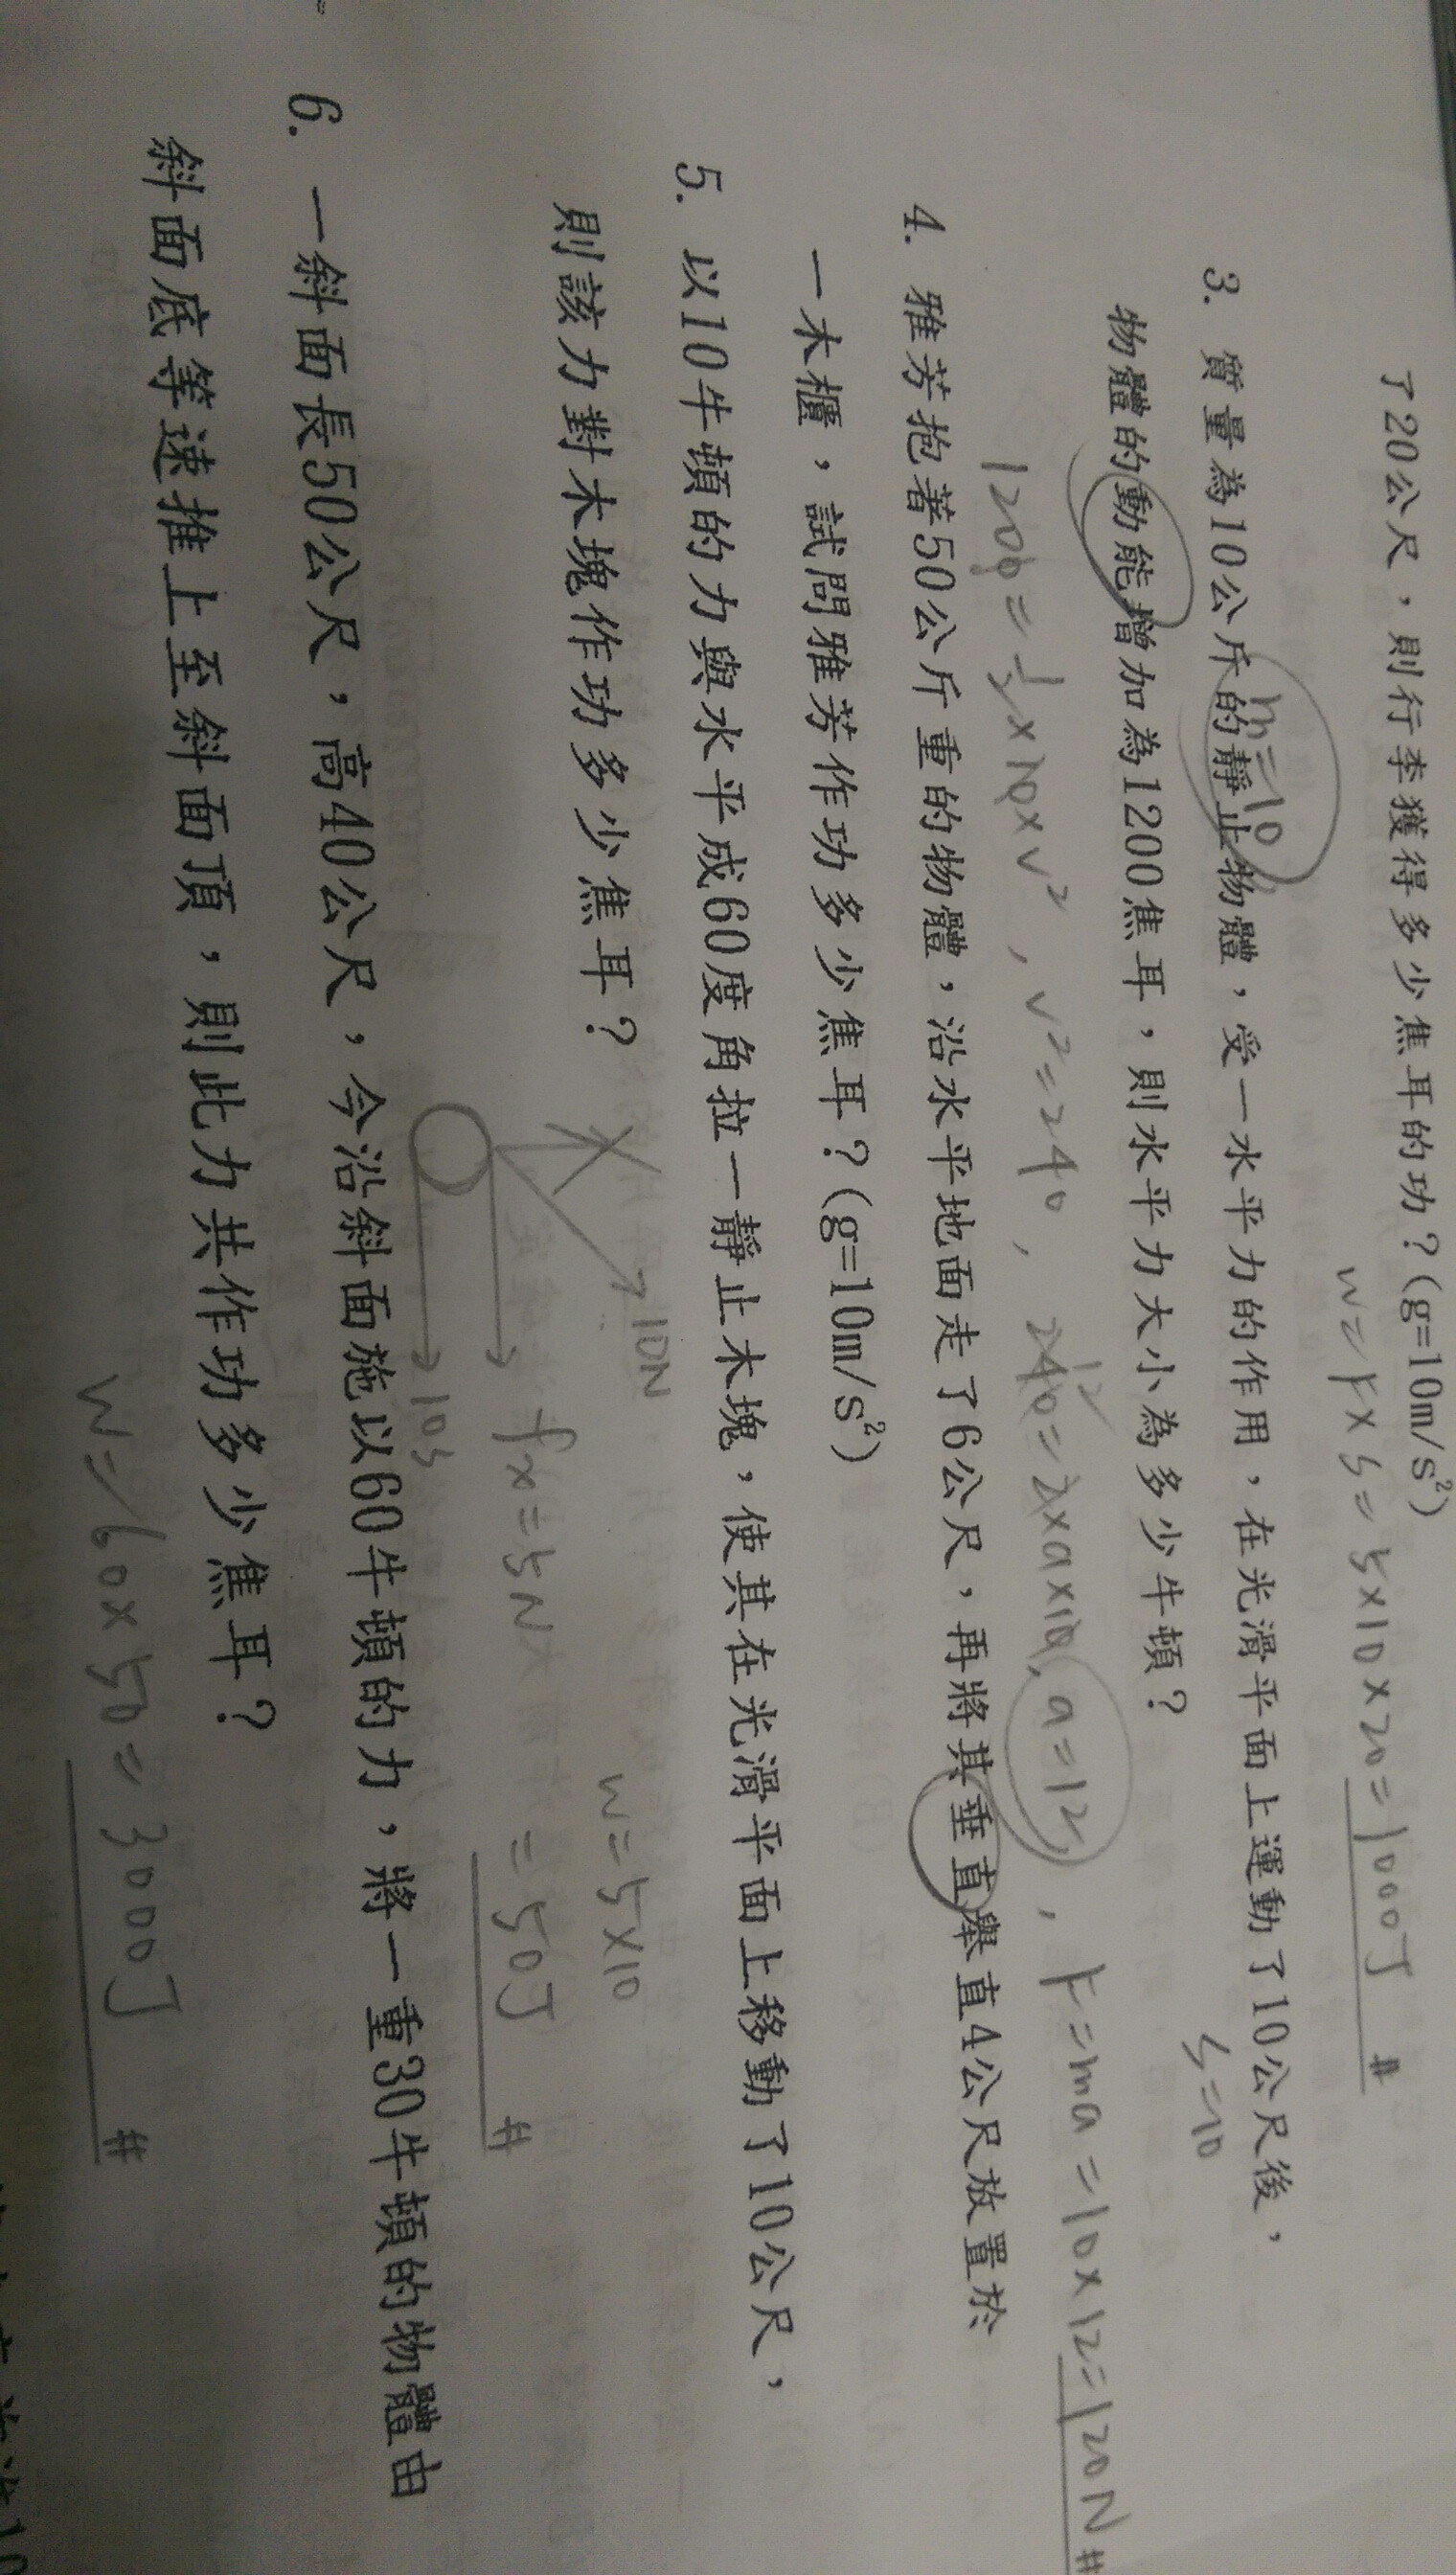 了20公尺，則行李獲得多少焦耳的功？(g=10m/s²)
W=F×S=5×10×20=1000J #
3. 質量為10公斤的靜止物體，受一水平力的作用，在光滑平面上運動了10公尺後，
m=10
S=10
物體的動能增加為1200焦耳，則水平力大小為多少牛頓？
1200=½×10×v²，v²=240，240=2×a×10，a=12，F=ma=10×12=120N #
12
4. 雅芳抱著50公斤重的物體，沿水平地面走了6公尺，再將其垂直舉直4公尺放置於
一木櫃，試問雅芳作功多少焦耳？(g=10m/s²)
5. 以10牛頓的力與水平成60度角拉一靜止木塊，使其在光滑平面上移動了10公尺，
則該力對木塊作功多少焦耳？
10N
W=5×10
fx=5N
=50J #
6. 一斜面長50公尺，高40公尺，今沿斜面施以60牛頓的力，將一重30牛頓的物體由
斜面底等速推上至斜面頂，則此力共作功多少焦耳？
W=60×50=3000J #